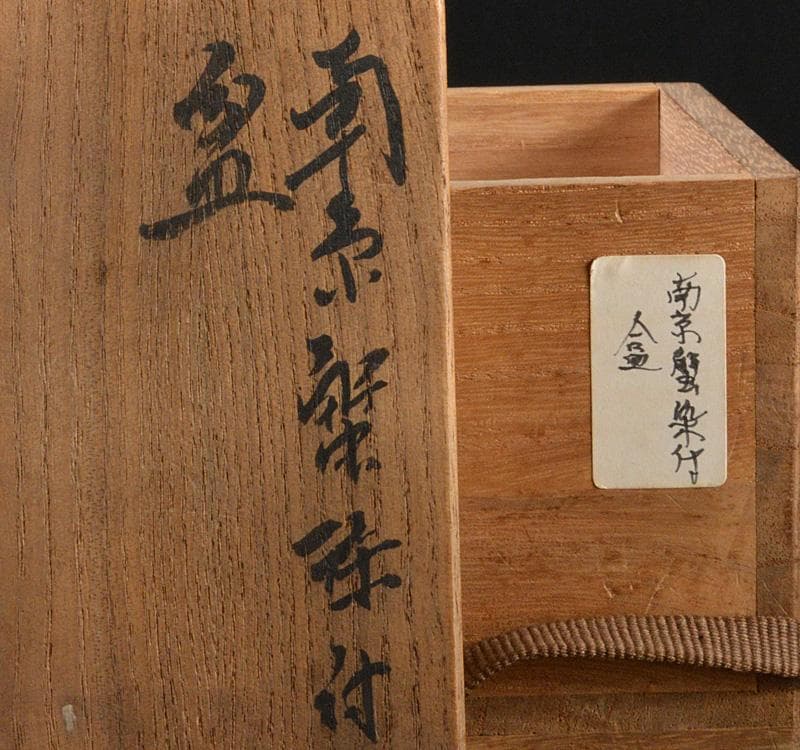 南京蟹染付
盒
南京蟹染付
盒